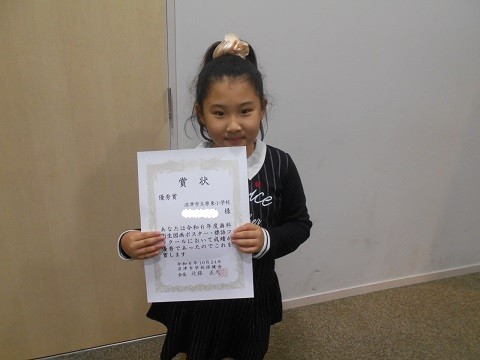 賞状
優秀賞
沼津市立 東小学校
様
あなたは令和６年度歯科
生図画ポスター・標語コ
クールにおいて成績が
優秀であったのでこれを
賞します
令和６年１０月２４日
沼津市学校保健会
会長
ace